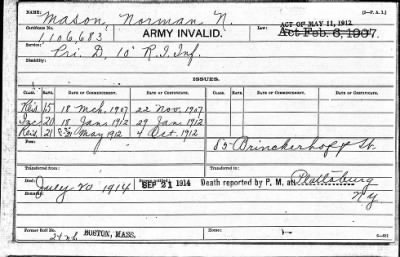 NAME: Mason, Norman N. (3—P. A. I.)
Certificate No. 1106683 ARMY INVALID. Law: ACT OF MAY 11, 1912.
Act Feb. 6, 1907.
Service: Pri. D, 10" R.I. Inf.
Disability:
ISSUES.
CLASS. RATE. DATE OF COMMENCEMENT. DATE OF CERTIFICATE. CLASS. RATE. DATE OF COMMENCEMENT. DATE OF CERTIFICATE.
Reis 15 18 Mch. 1907 22 Nov. 1907
Inc 20 18 Jan. 1912 29 Jan. 1912
Reis. 21 21 May 1912 4 Oct. 1912
From: 85 Brinckerhoff St.
Transferred from: Transferred to:
Died: July 20 1914 SEP 21 1914 Death reported by P. M. at Plattsburg
Remarks: N.Y.
Former Roll No. BOSTON, MASS. Home: